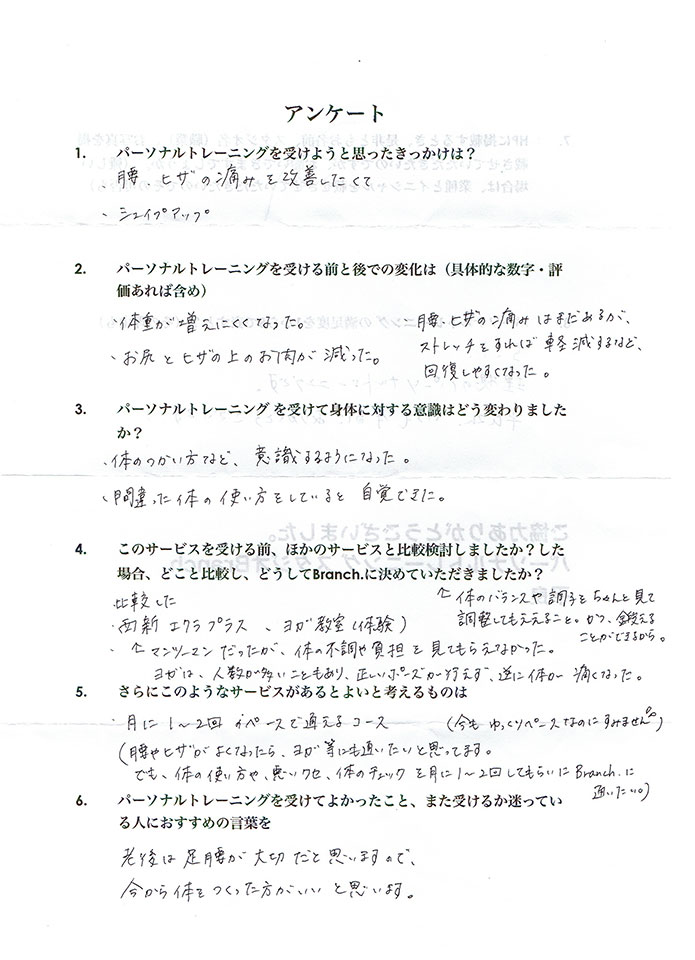 アンケート
1. パーソナルトレーニングを受けようと思ったきっかけは?
・腰、ヒザの痛みを改善したくて
・シェイプアップ
2. パーソナルトレーニングを受ける前と後での変化は（具体的な数字・評
価あれば含め）
・体重が増えにくくなった。
・お尻とヒザの上のお肉が減った。
・腰、ヒザの痛みはまだあるが、
ストレッチをすれば軽減するなど、
回復しやすくなった。
3. パーソナルトレーニング を受けて身体に対する意識はどう変わりました
か?
・体のつかい方など、意識するようになった。
・間違った体の使い方をしていると自覚できた。
4. このサービスを受ける前、ほかのサービスと比較検討しましたか?した
場合、どこと比較し、どうしてBranch.に決めていただきましたか?
比較した
・西新エクラプラス、ヨガ教室(体験)
↑体のバランスや調子をちゃんと見て
調整してもらえること。かつ、鍛える
ことができるから。
・↑マンツーマンだったが、体の不調や負担を見てもらえなかった。
ヨガは、人数が多いこともあり、正しいポーズが行えず、逆に体が痛くなった。
5. さらにこのようなサービスがあるとよいと考えるものは
・月に1〜2回のペースで通えるコース
(今もゆっくりペースなのにすみません)
(腰やヒザがよくなったら、ヨガ等にも通いたいと思ってます。
でも、体の使い方や、悪いクセ、体のチェックを月に1〜2回してもらいにBranch.に
通いたい。)
6. パーソナルトレーニングを受けてよかったこと、また受けるか迷ってい
る人におすすめの言葉を
老後は足腰が大切だと思いますので、
今から体をつくった方がいいと思います。